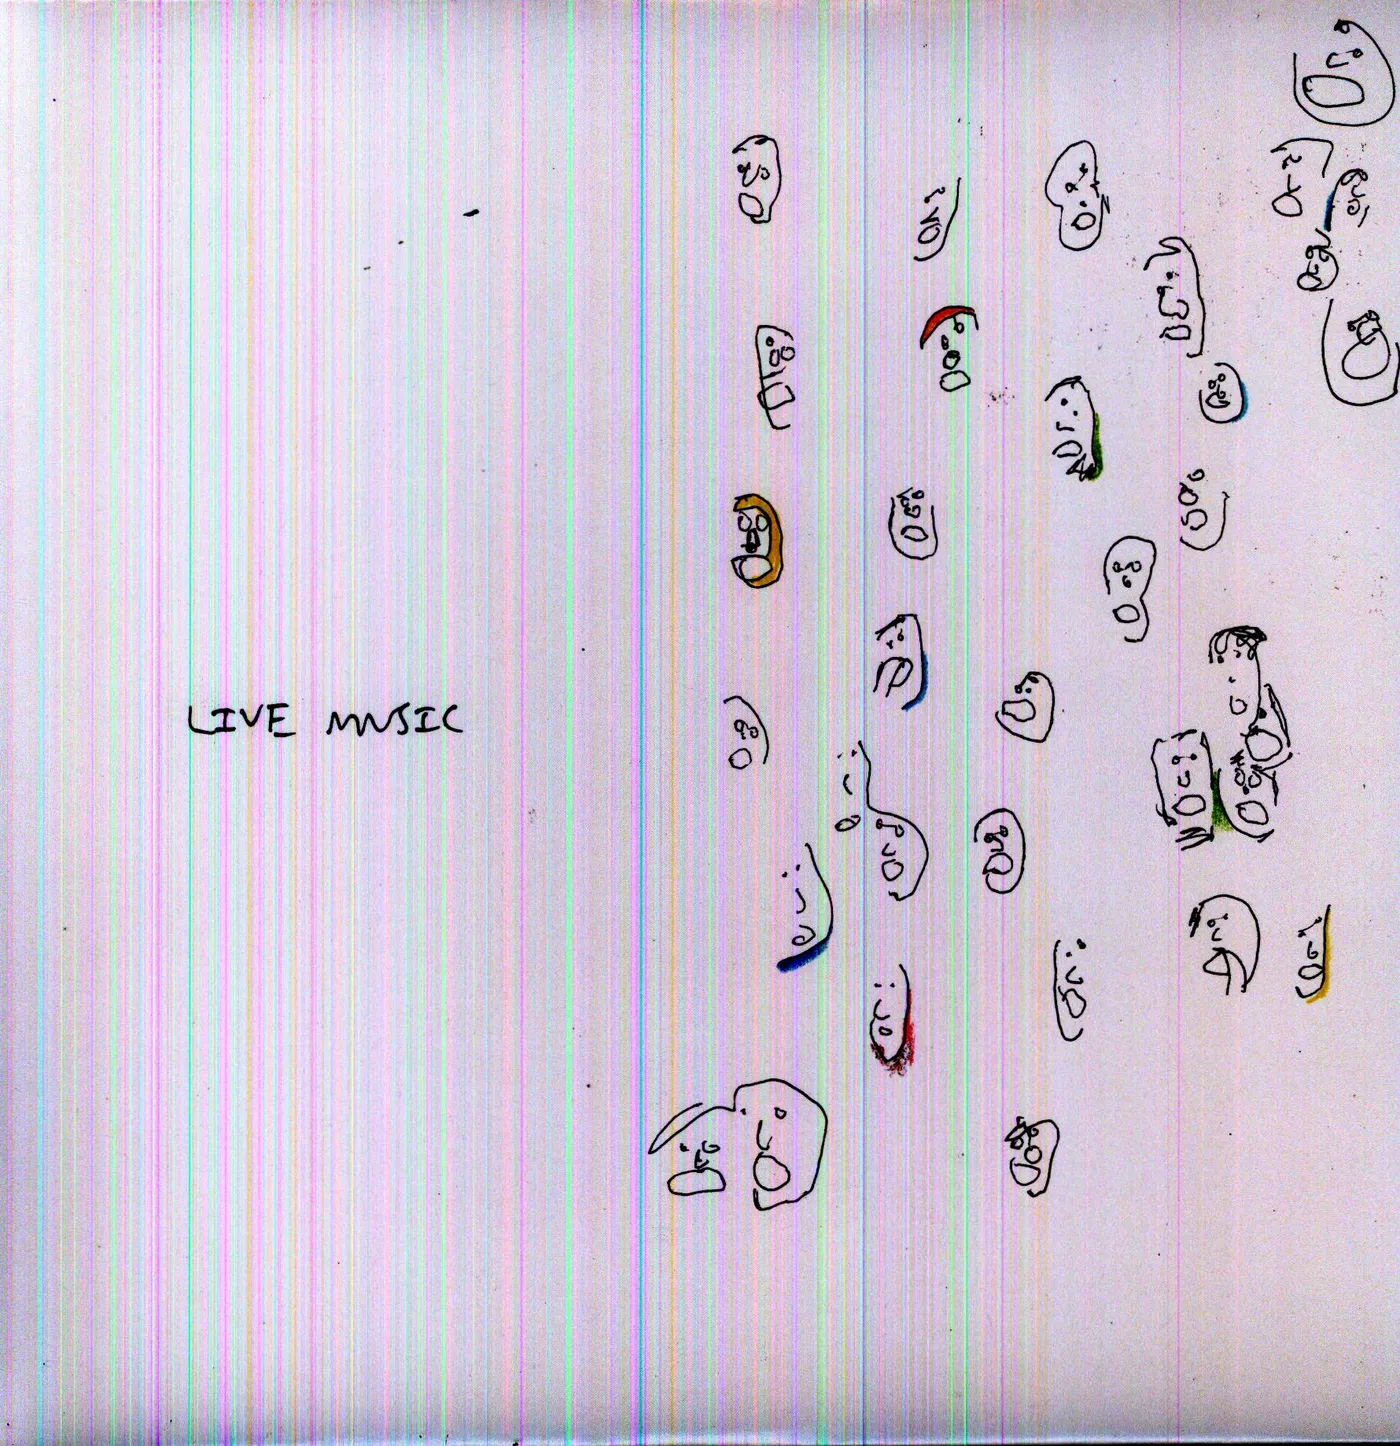 LIVE MUSIC